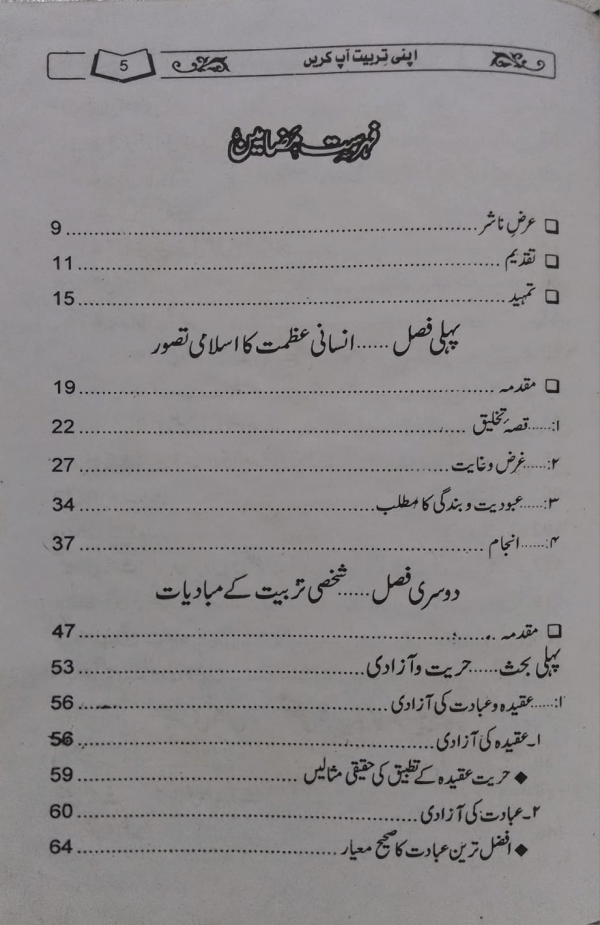 اپنی تربیت آپ کریں 5
فہرست مضامین
❑ عرضِ ناشر 9
❑ تقدیم 11
❑ تمہید 15
پہلی فصل ...... انسانی عظمت کا اسلامی تصور
❑ مقدمہ 19
۱:...... قصۂ تخلیق 22
۲:...... غرض وغایت 27
۳:...... عبودیت و بندگی کا مطلب 34
۴:...... انجام 37
دوسری فصل ...... شخصی تربیت کے مبادیات
❑ مقدمہ 47
پہلی بحث ...... حریت و آزادی 53
۱:...... عقیدہ و عبادت کی آزادی 56
۱۔ عقیدہ کی آزادی 56
◆ حریت عقیدہ کے تطبیق کی حقیقی مثالیں 59
۲۔ عبادت کی آزادی 60
◆ افضل ترین عبادت کا صحیح معیار 64